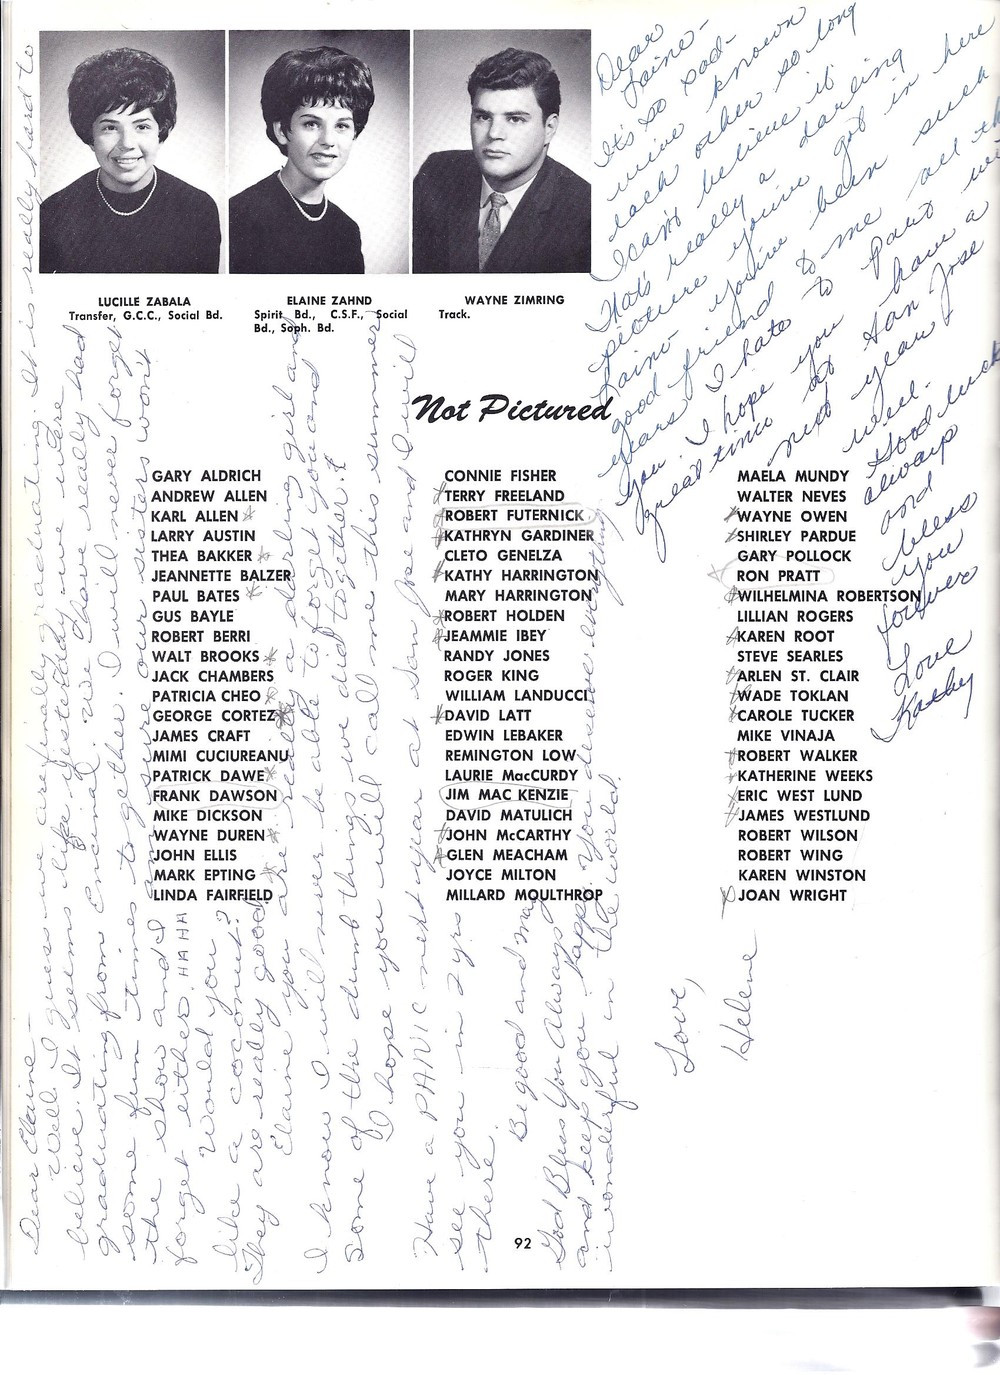 LUCILLE ZABALA
Transfer, G.C.C., Social Bd.
ELAINE ZAHND
Spirit Bd., C.S.F., Social
Bd., Soph. Bd.
WAYNE ZIMRING
Track.
Not Pictured
GARY ALDRICH
ANDREW ALLEN
KARL ALLEN
LARRY AUSTIN
THEA BAKKER
JEANNETTE BALZER
PAUL BATES
GUS BAYLE
ROBERT BERRI
WALT BROOKS
JACK CHAMBERS
PATRICIA CHEO
GEORGE CORTEZ
JAMES CRAFT
MIMI CUCIUREANU
PATRICK DAWE
FRANK DAWSON
MIKE DICKSON
WAYNE DUREN
JOHN ELLIS
MARK EPTING
LINDA FAIRFIELD
CONNIE FISHER
TERRY FREELAND
ROBERT FUTERNICK
KATHRYN GARDINER
CLETO GENELZA
KATHY HARRINGTON
MARY HARRINGTON
ROBERT HOLDEN
JEAMMIE IBEY
RANDY JONES
ROGER KING
WILLIAM LANDUCCI
DAVID LATT
EDWIN LEBAKER
REMINGTON LOW
LAURIE MacCURDY
JIM MAC KENZIE
DAVID MATULICH
JOHN McCARTHY
GLEN MEACHAM
JOYCE MILTON
MILLARD MOULTHROP
MAELA MUNDY
WALTER NEVES
WAYNE OWEN
SHIRLEY PARDUE
GARY POLLOCK
RON PRATT
WILHELMINA ROBERTSON
LILLIAN ROGERS
KAREN ROOT
STEVE SEARLES
ARLEN ST. CLAIR
WADE TOKLAN
CAROLE TUCKER
MIKE VINAJA
ROBERT WALKER
KATHERINE WEEKS
ERIC WEST LUND
JAMES WESTLUND
ROBERT WILSON
ROBERT WING
KAREN WINSTON
JOAN WRIGHT
92
Dear
Laine-
It's so sad-
we've known
each other so long
I can't believe it
That's really a darling
picture you've got in here
Laine you've been such
good friend to me all th
years I hate to part wi
you. I hope you have a
great time at San Jose
next year
well.
Good luck
always
and
bless
you
forever
Love
Kathy
Dear Elaine-
Well I guess we are finally graduating. It is really hard to
believe. It seems like yesterday we were
graduating from Encinal. We have really had
some fun times together. I will never forget
the show and I am sure our sisters won't
forget either. HA HA
Would you
like a coconut?
They are really good
Elaine you are really a darling girl and
I know I will never be able to forget you and
some of the dumb things we did together.
I hope you will call me this summer
Have a PANIC next year at San Jose and I will
see you in 2 yrs
there.
Be good and may
God Bless You Always
and keep you happy. You deserve everything
wonderful in the world.
Love,
Helene